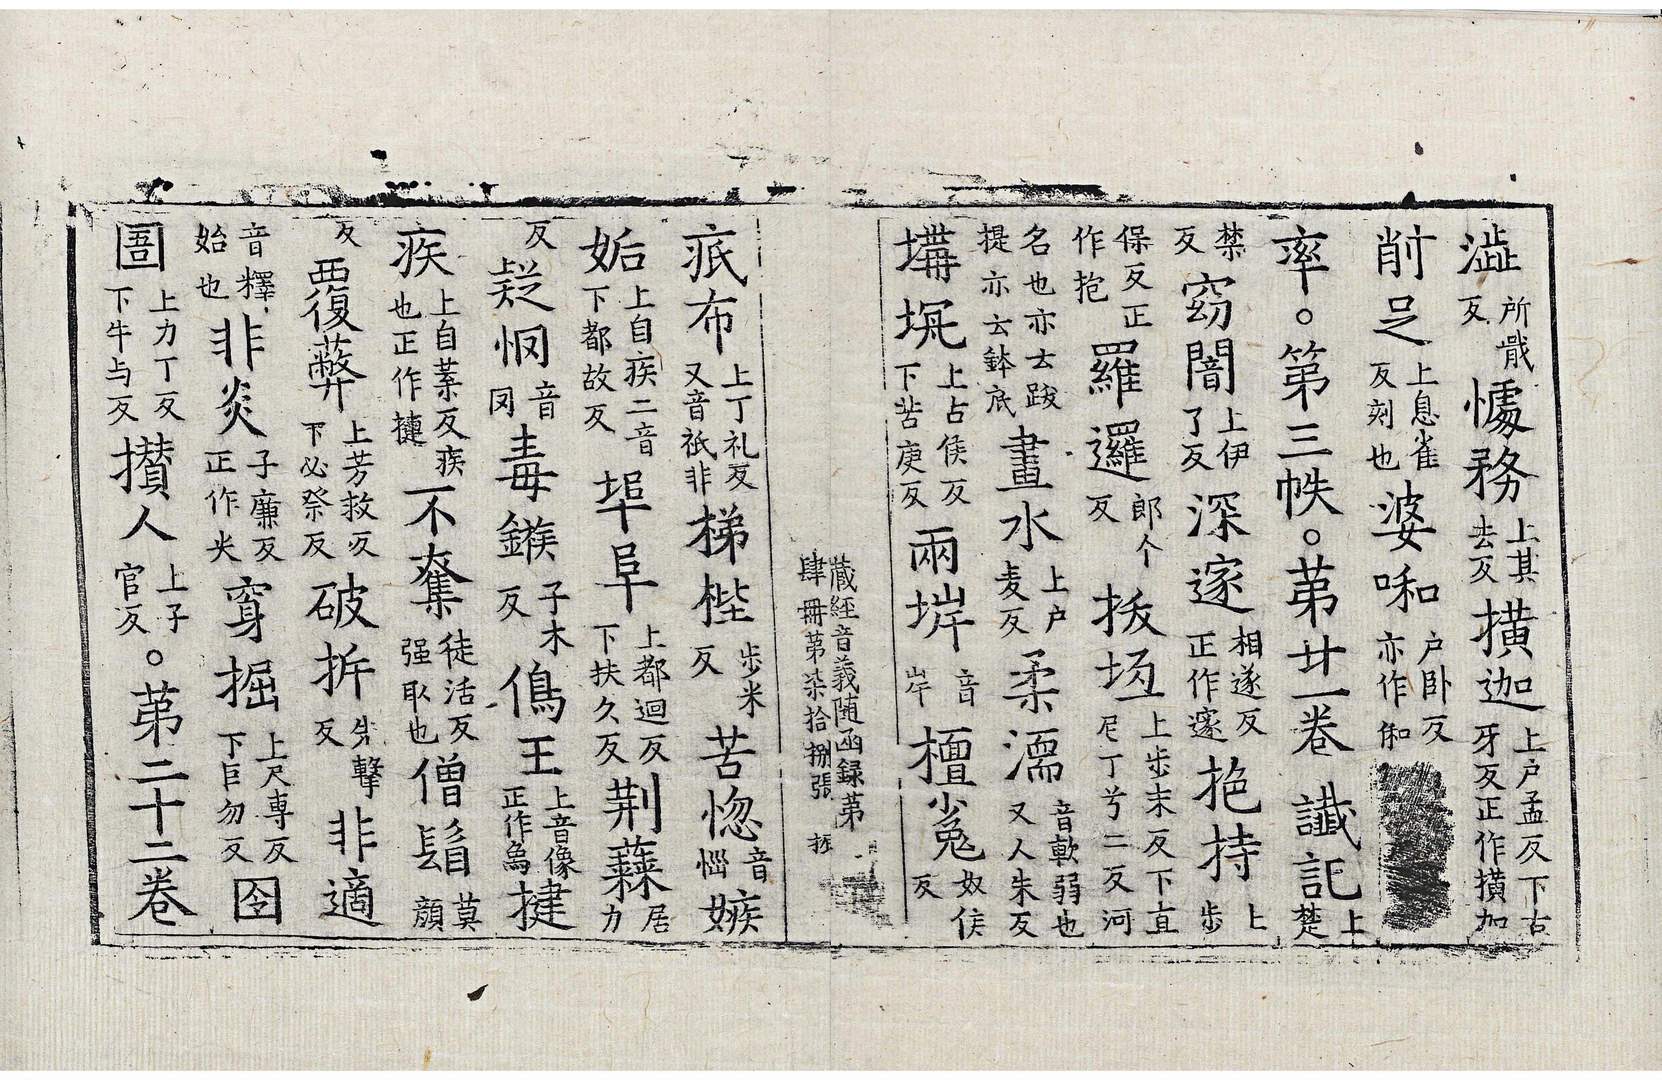 澁所戢反懅務上其去反撗迦上户孟反下古牙反正作撗加
削足上息雀反刻也婆啝户卧反亦作和
率。第三帙。第廿一卷 讖記上楚
禁反窈闇上伊了反深邃相遂反正作邃抱持上步
保反正作抱羅邏郎个反扷上步末反下直尼丁兮二反河
名也亦云跋提亦云鉢底畫水上户麦反柔濡音軟弱也又人朱反
塂上占侯反下苦庚反兩垾音岸檀㝹奴侯反
藏經音義随函録第肆冊第柒拾捌張
疧布上丁礼反又音祇非梯梐步米反苦惚音惱嫉
妬上自疾二音下都故反埠阜上都迴反下扶久反荆蕀居力
反疑㤯音罔毒鏃子木反㒟王上音像正作為揵
疾上自葉反疾也正作揵不奪徒活反强取也僧䭿莫顔
反覆蔽上芳救反下必祭反破㭊先擊反非適
音釋始也非炎子廉反正作尖穿掘上尺專反下巨勿反囹
圄上力丁反下牛与反攅人上子官反。第二十二卷